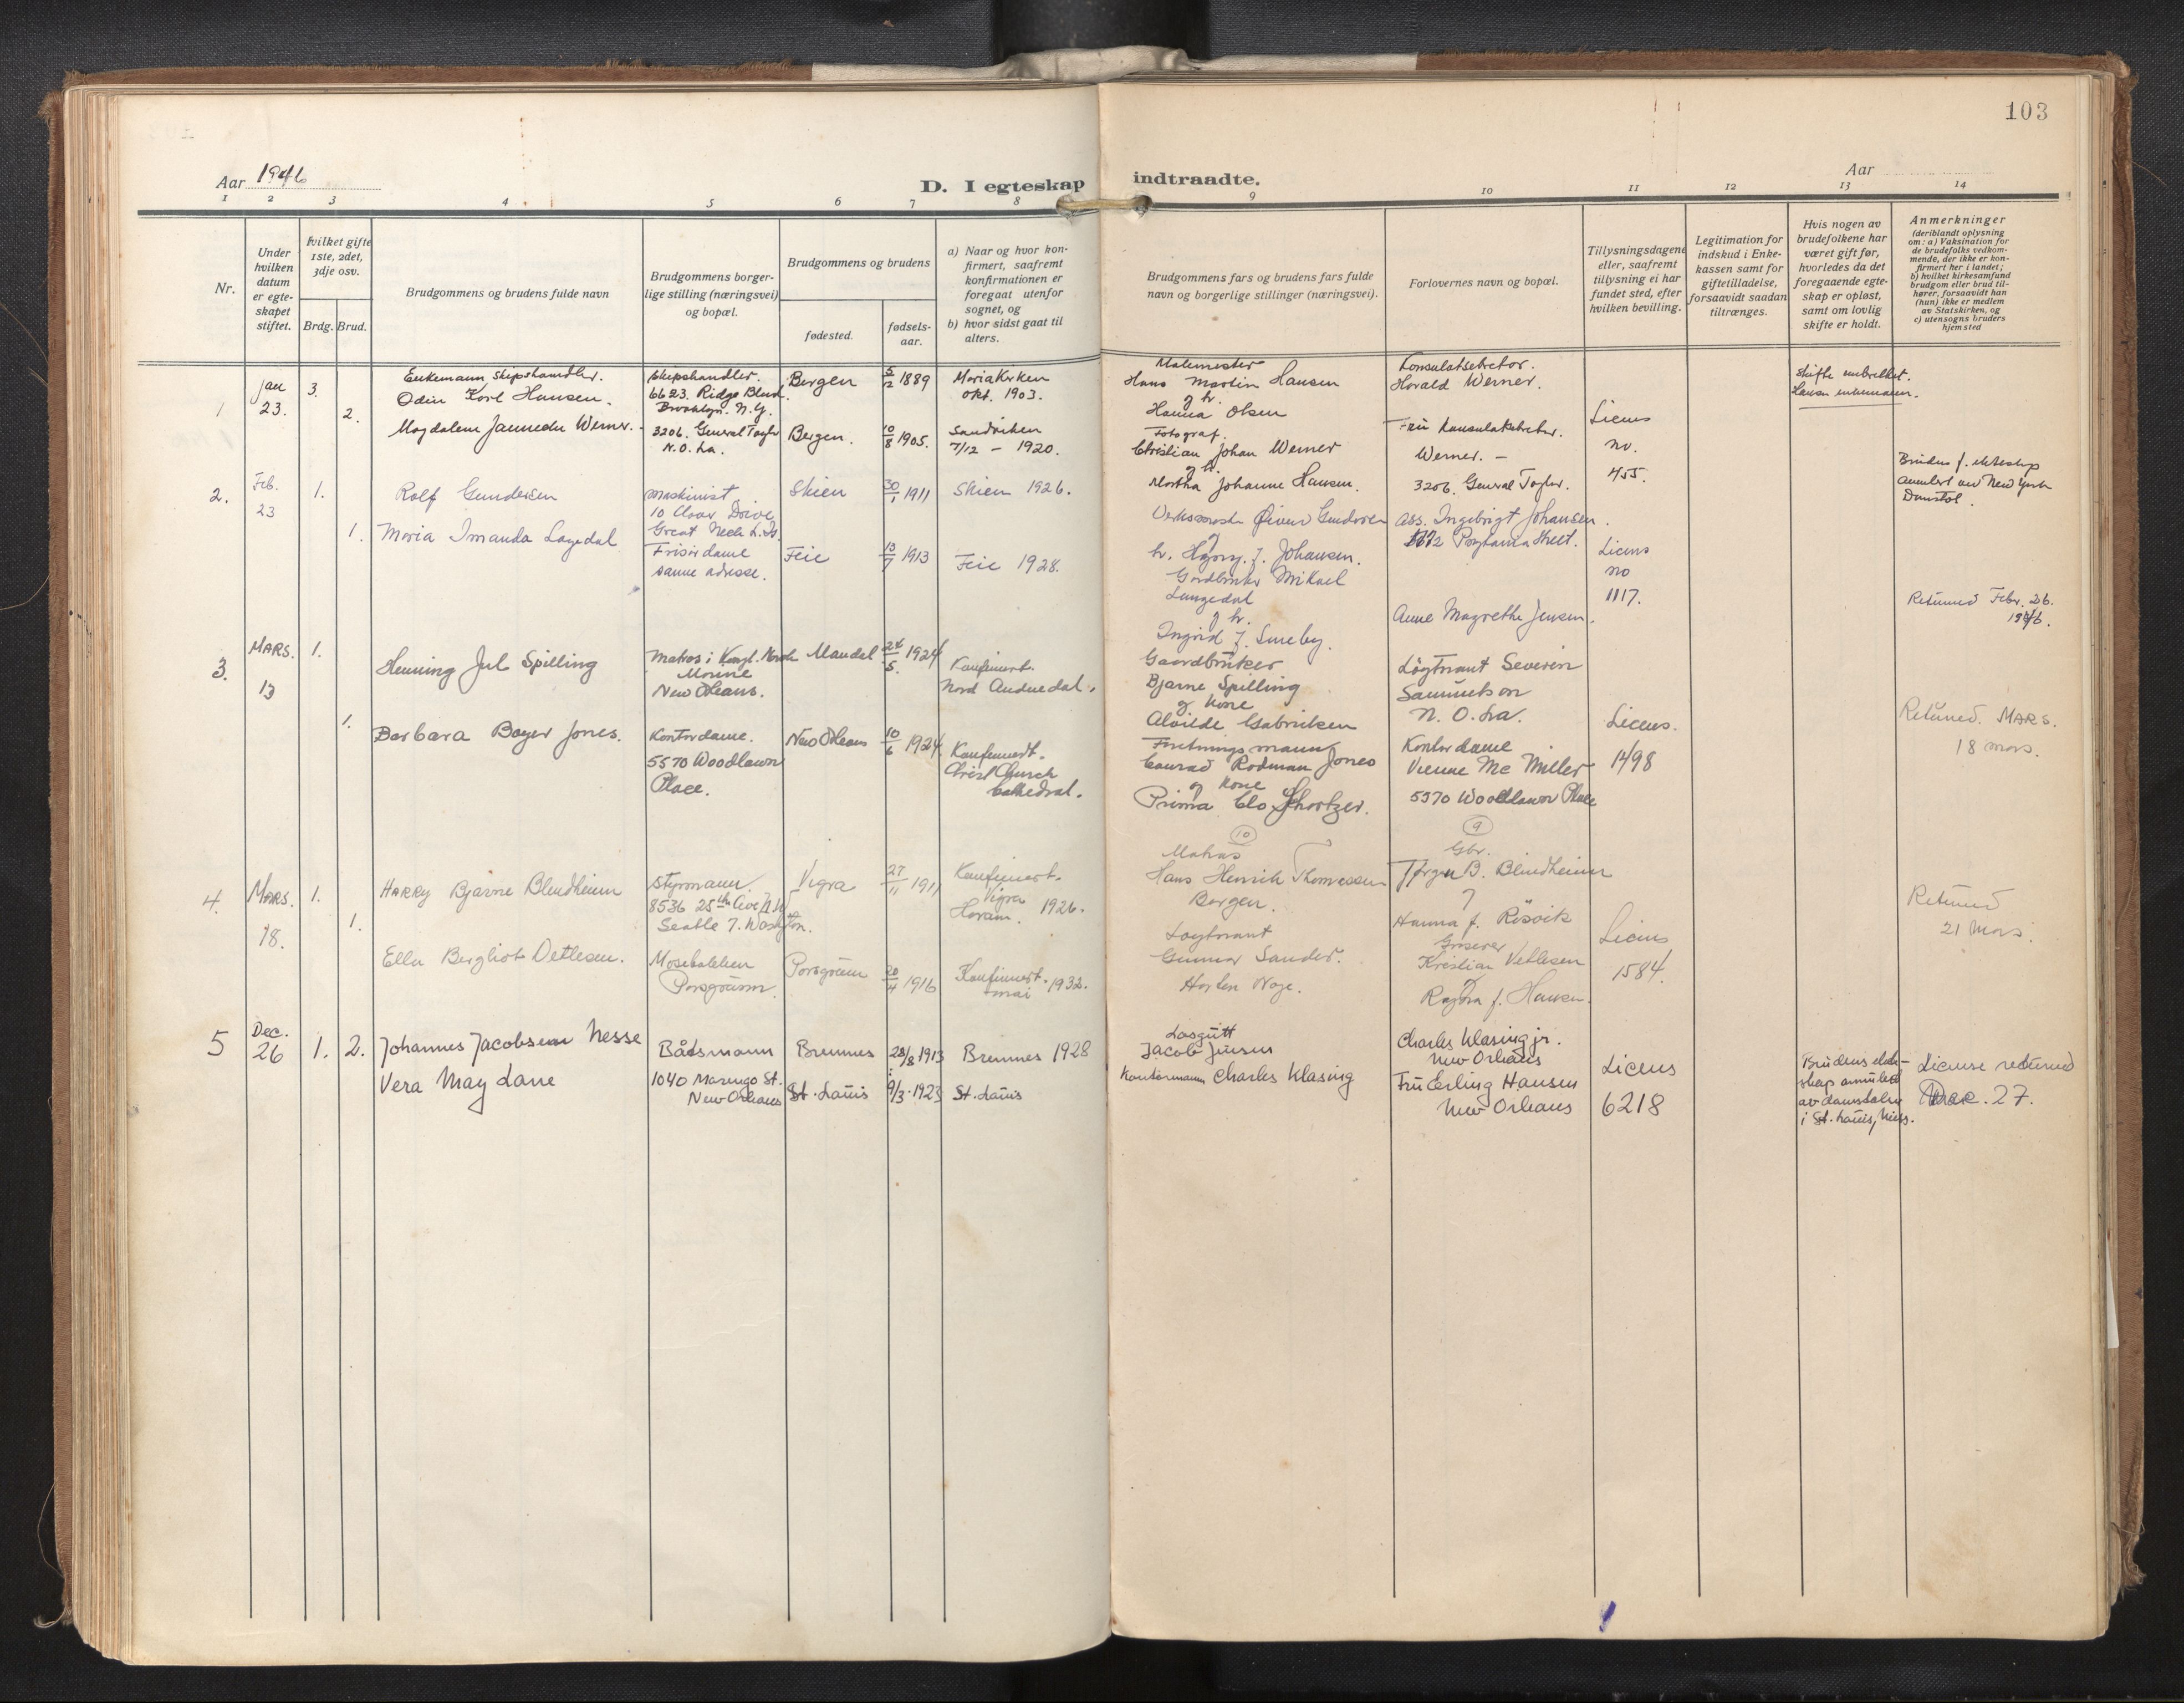 103
Aar 1946
D. I egteskap indtraadte.
Aar
1 2 3 4 5 6 7 8 9 10 11 12 13 14
Nr.
Under hvilken datum er egteskapet stiftet.
hvilket gifte 1ste, 2det, 3dje osv.
Brdg. Brud.
Brudgommens og brudens fulde navn
Brudgommens borgerlige stilling (næringsvei) og bopæl.
Brudgommens og brudens
fødested.
fødselsaar.
a) Naar og hvor konfirmert, saafremt konfirmationen er foregaat utenfor sognet, og
b) hvor sidst gaat til alters.
Brudgommens fars og brudens fars fulde navn og borgerlige stillinger (næringsvei).
Forlovernes navn og bopæl.
Tillysningsdagene eller, saafremt tillysning ei har fundet sted, efter hvilken bevilling.
Legitimation for indskud i Enkekassen samt for giftetilladelse, forsaavidt saadan tiltrænges.
Hvis nogen av brudefolkene har været gift før, hvorledes da det foregaaende egteskap er opløst, samt om lovlig skifte er holdt.
Anmerkninger
(deriblandt oplysning om: a) Vaksination for de brudefolks vedkommende, der ikke er konfirmert her i landet; b) hvilket kirkesamfund brudgom eller brud tilhører, forsaavidt han (hun) ikke er medlem av Statskirken, og c) utensogns bruders hjemsted
1
Jan 23.
3.
2.
Enkemann, Skipshandler.
Odin Karl Hansen.
Magdalene Werner.
Skipshandler.
6623. Ridge Blvd.
Brooklyn. N.Y.
3206. General Taylor
N.O. La.
Bergen 5/12 1889
Bergen. 10/8 1905.
Mariakirken
okt. 1903.
Sandviken
7/12 – 1920.
Malemester
Hans Martin Hansen
og h.
Hanna Olsen
Fotograf.
Christian Johan Werner
og h.
Martha Johanne Hansen.
Konsulatsekretær.
Harald Werner.
Fru Konsulatsekretær.
Werner. –
3206. General Taylor.
Licens
no.
455.
Skifte
Hansen enkemann.
Brudens f. ekteskap
annulert ved New York
Domstol.
2.
Feb.
23
1.
1.
Rolf Gundersen
Maria Imanda Langedal
Maskinist
10 Clover Drive
Great Neck L.I.
Frisørdame
samme adresse.
Skien 30/1 1911
Feie 13/7 1913
Skien 1926.
Feie 1928.
Gundersen
og
h. J. Johansen.
Gardbruker Mikael
Langedal
og h.
Ingrid f. Smeby.
Ass. Ingebrigt Johansen.
Anne Magrethe Jensen.
Licens
no
1117.
Returned Febr. 26.
1946.
3.
MARS.
13
1.
1.
Henning Jul Spilling
Barbara Boyer Jones.
Matros i Kongl. Norsk
Marine
New Orleans.
Kontordame.
5570 Woodlawn
Place.
Mandal 24/5. 1924
New Orleans 10/6 1924.
Konfirmert.
Nord Audnedal.
Konfirmert.
Christ Church
Cathedral.
Gaardbruker
Bjarne Spilling
og Kone
Alvilde Gabrielsen
Forretningsmann
Conrad Rodman Jones
og Kone
Prima Clo Shortzer.
Løytnant Severin
Samuelson
N. O. La.
Kontordame
Vienne Mc Miller
5570 Woodlawn Place
Licens.
1498
Returned. MARS.
18 mars.
4.
MARS.
18.
1.
1.
HARRY Bjarne Blindheim
Ella Bergliot Detlesen.
Styrmann.
8536 25th Ave N.W.
Seatle 7. Washington.
Porsgrunn.
Vigra 27/11 1911
Porsgrunn 20/4 1916
Konfirmert.
Vigra
Haram. 1926.
Konfirmert.
mai 1932.
(10)
Matros
Hans Henrik Thomessen
Bergen.
Løytnant
Gunnar Sander.
Horten Norge.
(9)
Gbr.
Jørgen B. Blindheim
og
Hanna f. Røsvik
Grosserer
Kristian Vetlesen
og
Ragna f. Hansen.
Licens
1584.
Returned
21 Mars.
5
Dec.
26
1. 2.
Johannes Jacobsen Nesse
Vera May Lane
Båtsmann
1040 Marengo St.
New Orleans
Bremnes 28/8 1913
St. Louis 9/3. 1923
Bremnes 1928
St. Louis
Losgutt
Jacob Jensen
Kontormann Charles Klasing
Charles Klasing jr.
New Orleans
Fru Erling Hansen
New Orleans
Licens
6218
Brudens ekteskap annulert
av domstolen
i St. Louis, Miss.
License returned
Dec. 27.